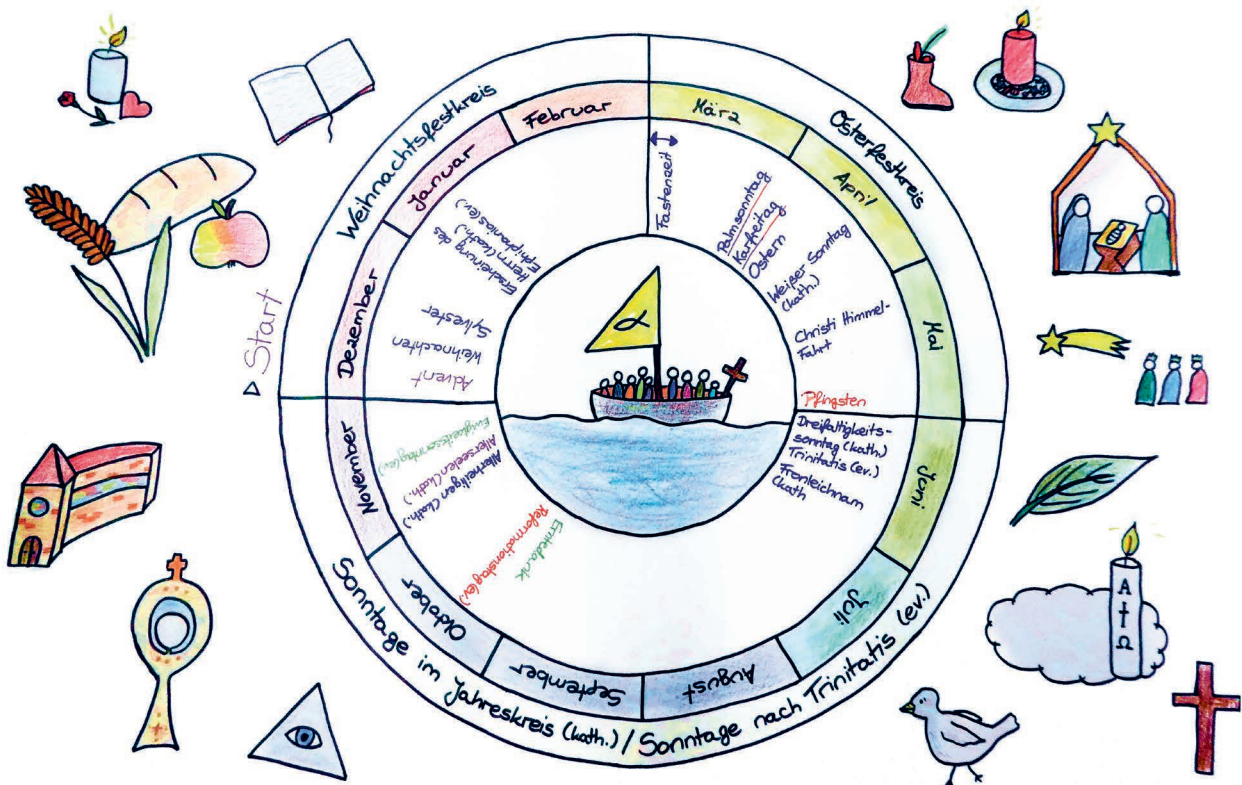 Weihnachtsfestkreis
Osterfestkreis
Sonntage im Jahreskreis (kath.) / Sonntage nach Trinitatis (ev.)
Start
Dezember
Januar
Februar
März
April
Mai
Juni
Juli
August
September
Oktober
November
Advent
Weihnachten
Sylvester
Erscheinung des
Herrn (kath.)
Ephiphanias (ev.)
Fastenzeit
Palmsonntag
Karfreitag
Ostern
Weißer Sonntag
(kath.)
Christi Himmel-
Fahrt
Pfingsten
Dreifaltigkeits-
sonntag (kath.)
Trinitatis (ev.)
Fronleichnam
(kath
Erntedank
Reformationstag (ev.)
Allerheiligen (kath.)
Allerseelen (kath.)
Ewigkeitssonntag (ev.)
α
A
Ω